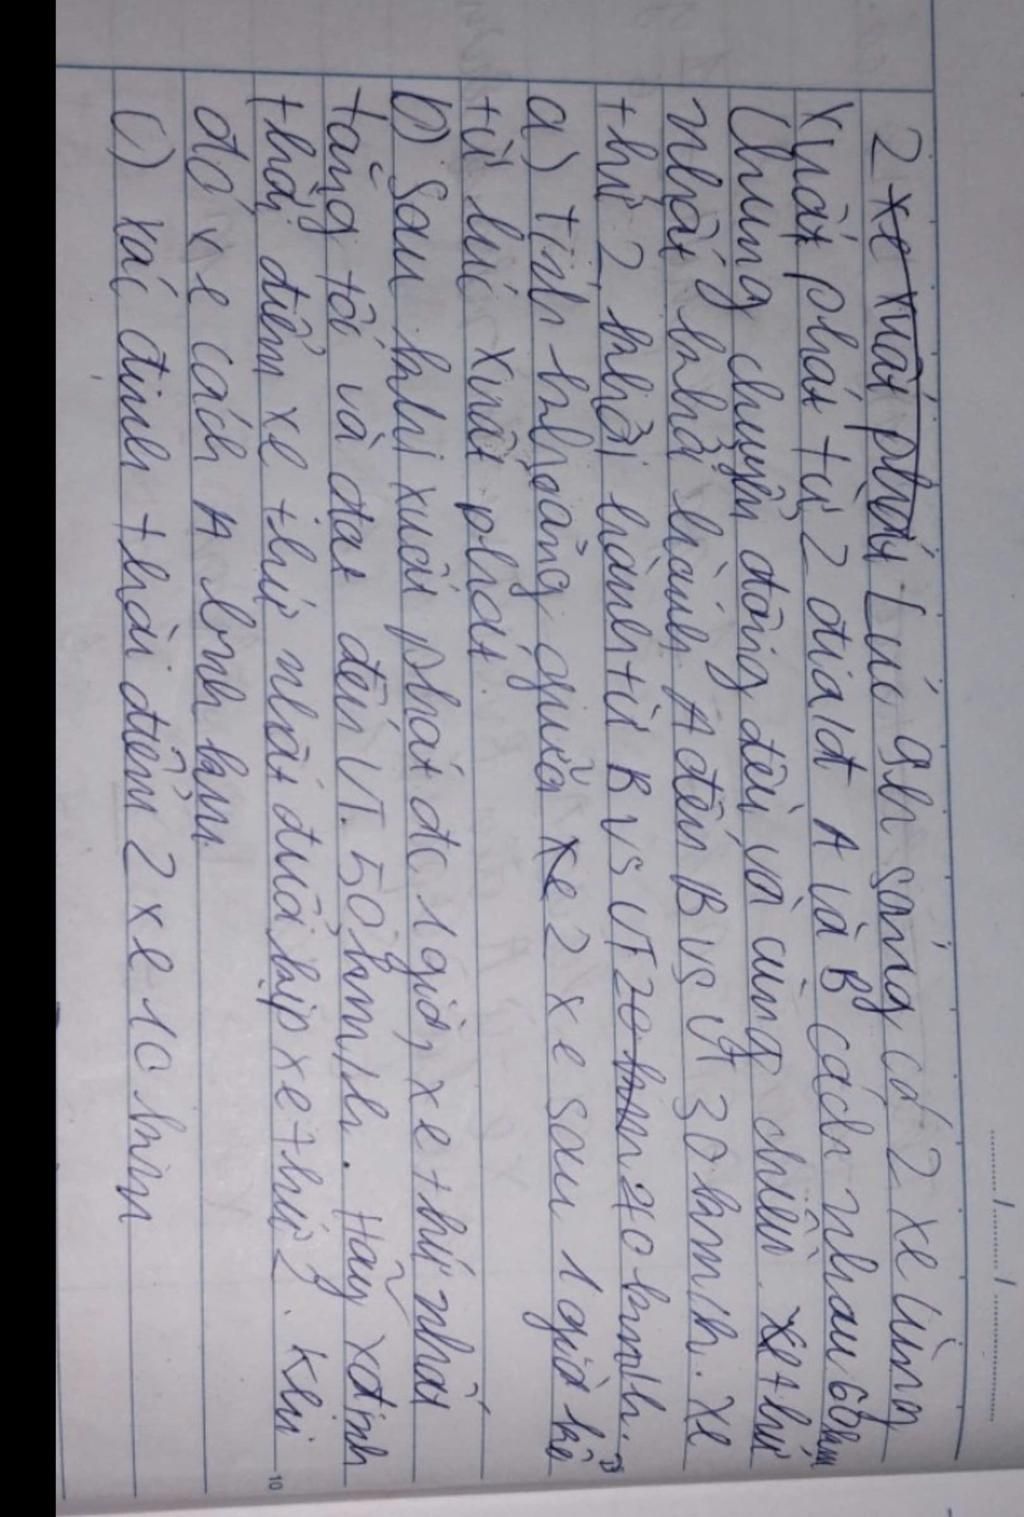 2 xe xuất phát Lúc 9h sáng có 2 xe cùng
Xuất phát từ 2 địa lđ A và B cách nhau 60km
Chúng chuyển động đều và cùng chiều. xe thứ
nhất khởi hành A đến B vs VT 30km/h. xe
thứ 2, khởi hành từ B vs VT 20 km 40km/h.
a) tính khoảng giữa xe 2 xe sau 1 giờ kể
từ lúc xuất phát
b) Sau khi xuất phát đc 1 giờ, xe thứ nhất
tăng tốc và đạt đến VT. 50km/h. Hãy xđịnh
thời điểm xe thứ nhất đuổi kịp xe thứ 2. Khi
đó, xe cách A bnh km
c) xác định thời điểm 2 xe 10 km
10